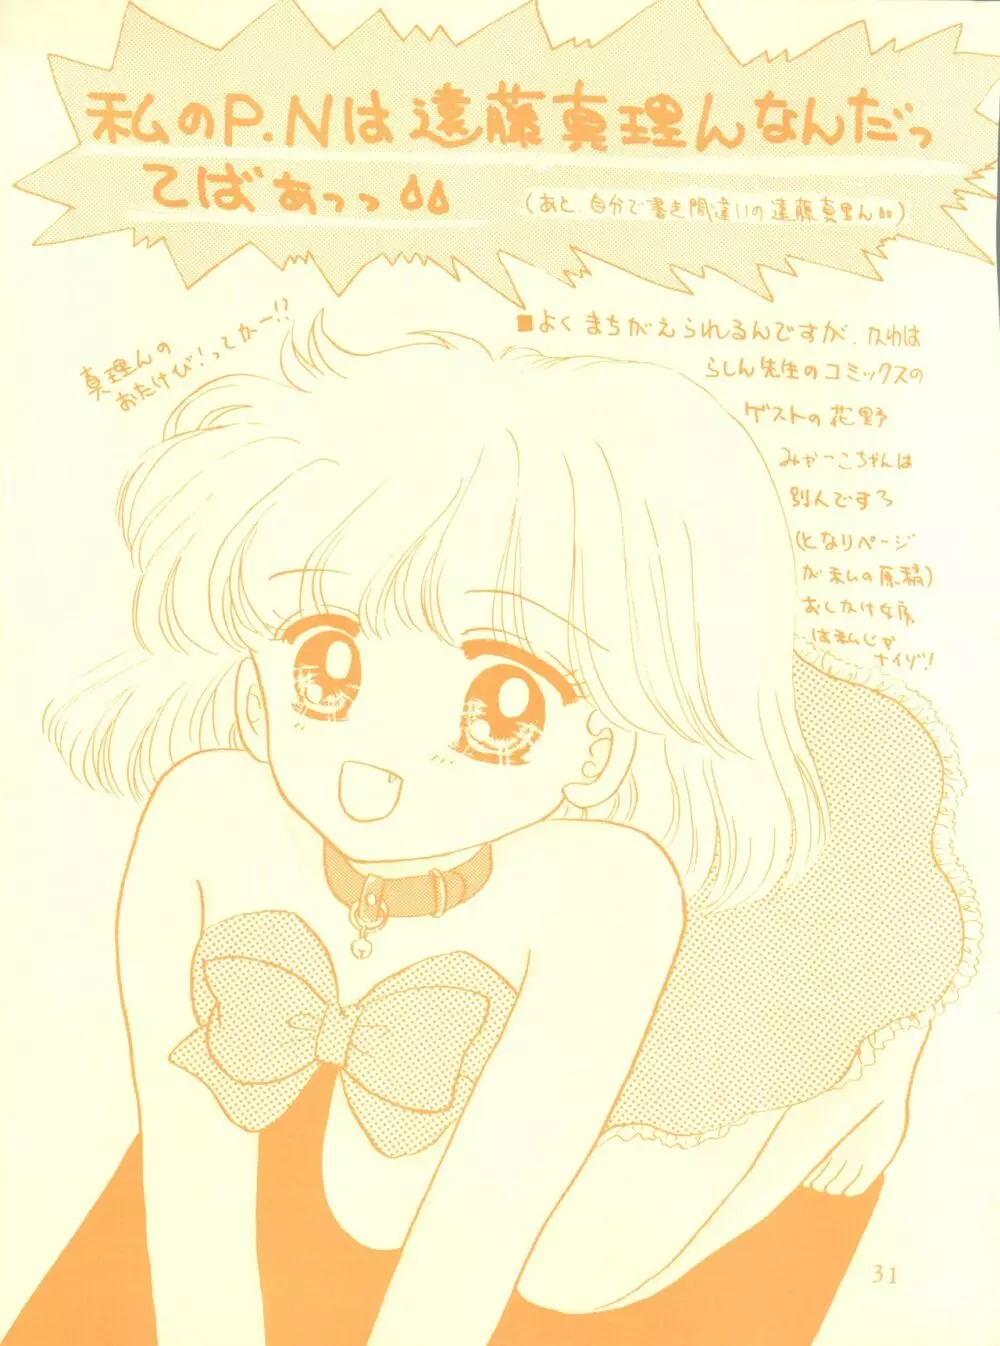 私のP.Nは遠藤真理んなんだっ
てばぁっっ
(あと、自分で書き間違いの遠藤真里ん)
真理んの
おたけび!ってかー!?
■よくまちがえられるんですが、かわは
らしん先生のコミックスの
ゲストの花野
みかっこちゃんは
別人ですろ
(となりページ
が私の原稿)
おしかけ女房
…は私じゃ
ナイゾ!
31